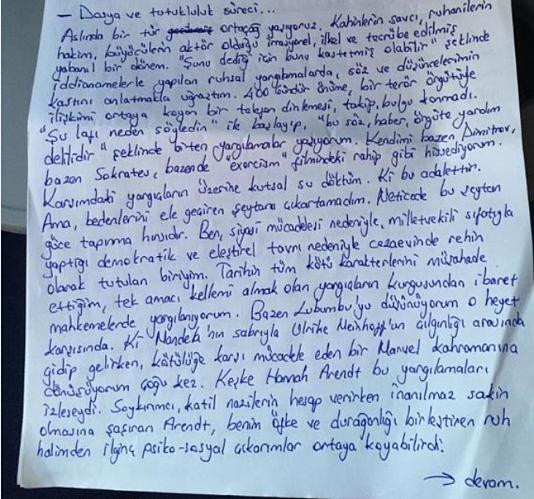 — Dava ve tutukluluk süreci...
Aslında bir tür ortaçağ yaşıyoruz. Kahinlerin savcı, ruhanilerin
hakim, büyücülerin aktör olduğu irrasyonel, ilkel ve tecrübe edilmiş
yabanıl bir dönem. "Şunu dediği için bunu kastetmiş olabilir" şeklinde
iddianamelerle yapılan ruhsal yargılamalarda, söz ve düşüncelerimin
kastını anlatmakla uğraştım. 400 gündür önüme, bir terör örgütüyle
ilişkimi ortaya koyan bir talep, dinlemesi, takip, bulgu konmadı.
"Şu lafı neden söyledin" ile başlayıp, "bu söz, haber, örgüte yardım
delilidir" şeklinde biten yargılamalar yaşıyorum. Kendimi bazen Dimitrov,
bazen Sokrates, bazende "exorcism" filmindeki rahip gibi hissediyorum.
Karşımdaki yargıçların üzerine kutsal su döktüm. Ki bu adalettir.
Ama, bedenlerini ele geçiren şeytanı çıkartamadım. Neticede bu şeytan
güce tapınma hırsıdır. Ben, siyasi mücadelesi nedeniyle, milletvekili sıfatıyla
yaptığı demokratik ve eleştirel tavrı nedeniyle cezaevinde rehin
olarak tutulan biriyim. Tarihin tüm kötü karakterlerini müşahade
ettiğim, tek amacı kellemi almak olan yargıçların kurgusundan ibaret
mahkemelerde yargılanıyorum. Bazen Lubumbu'yu düşünüyorum o heyet
karşısında. Ki Mandela'nın sabrıyla Ulrike Meinhoff'un çılgınlığı arasında
gidip gelirken, kötülüğe karşı mücadele eden bir Marvel kahramanına
dönüşüyorum çoğu kez. Keşke Hannah Arendt bu yargılamaları
izleseydi. Soykırımcı, katil nazilerin hesap verirken inanılmaz sakin
olmasına şaşıran Arendt, benim öfke ve durağanlığı birleştiren ruh
halimden ilginç psiko-sosyal çıkarımlar ortaya koyabilirdi.
→ devam.